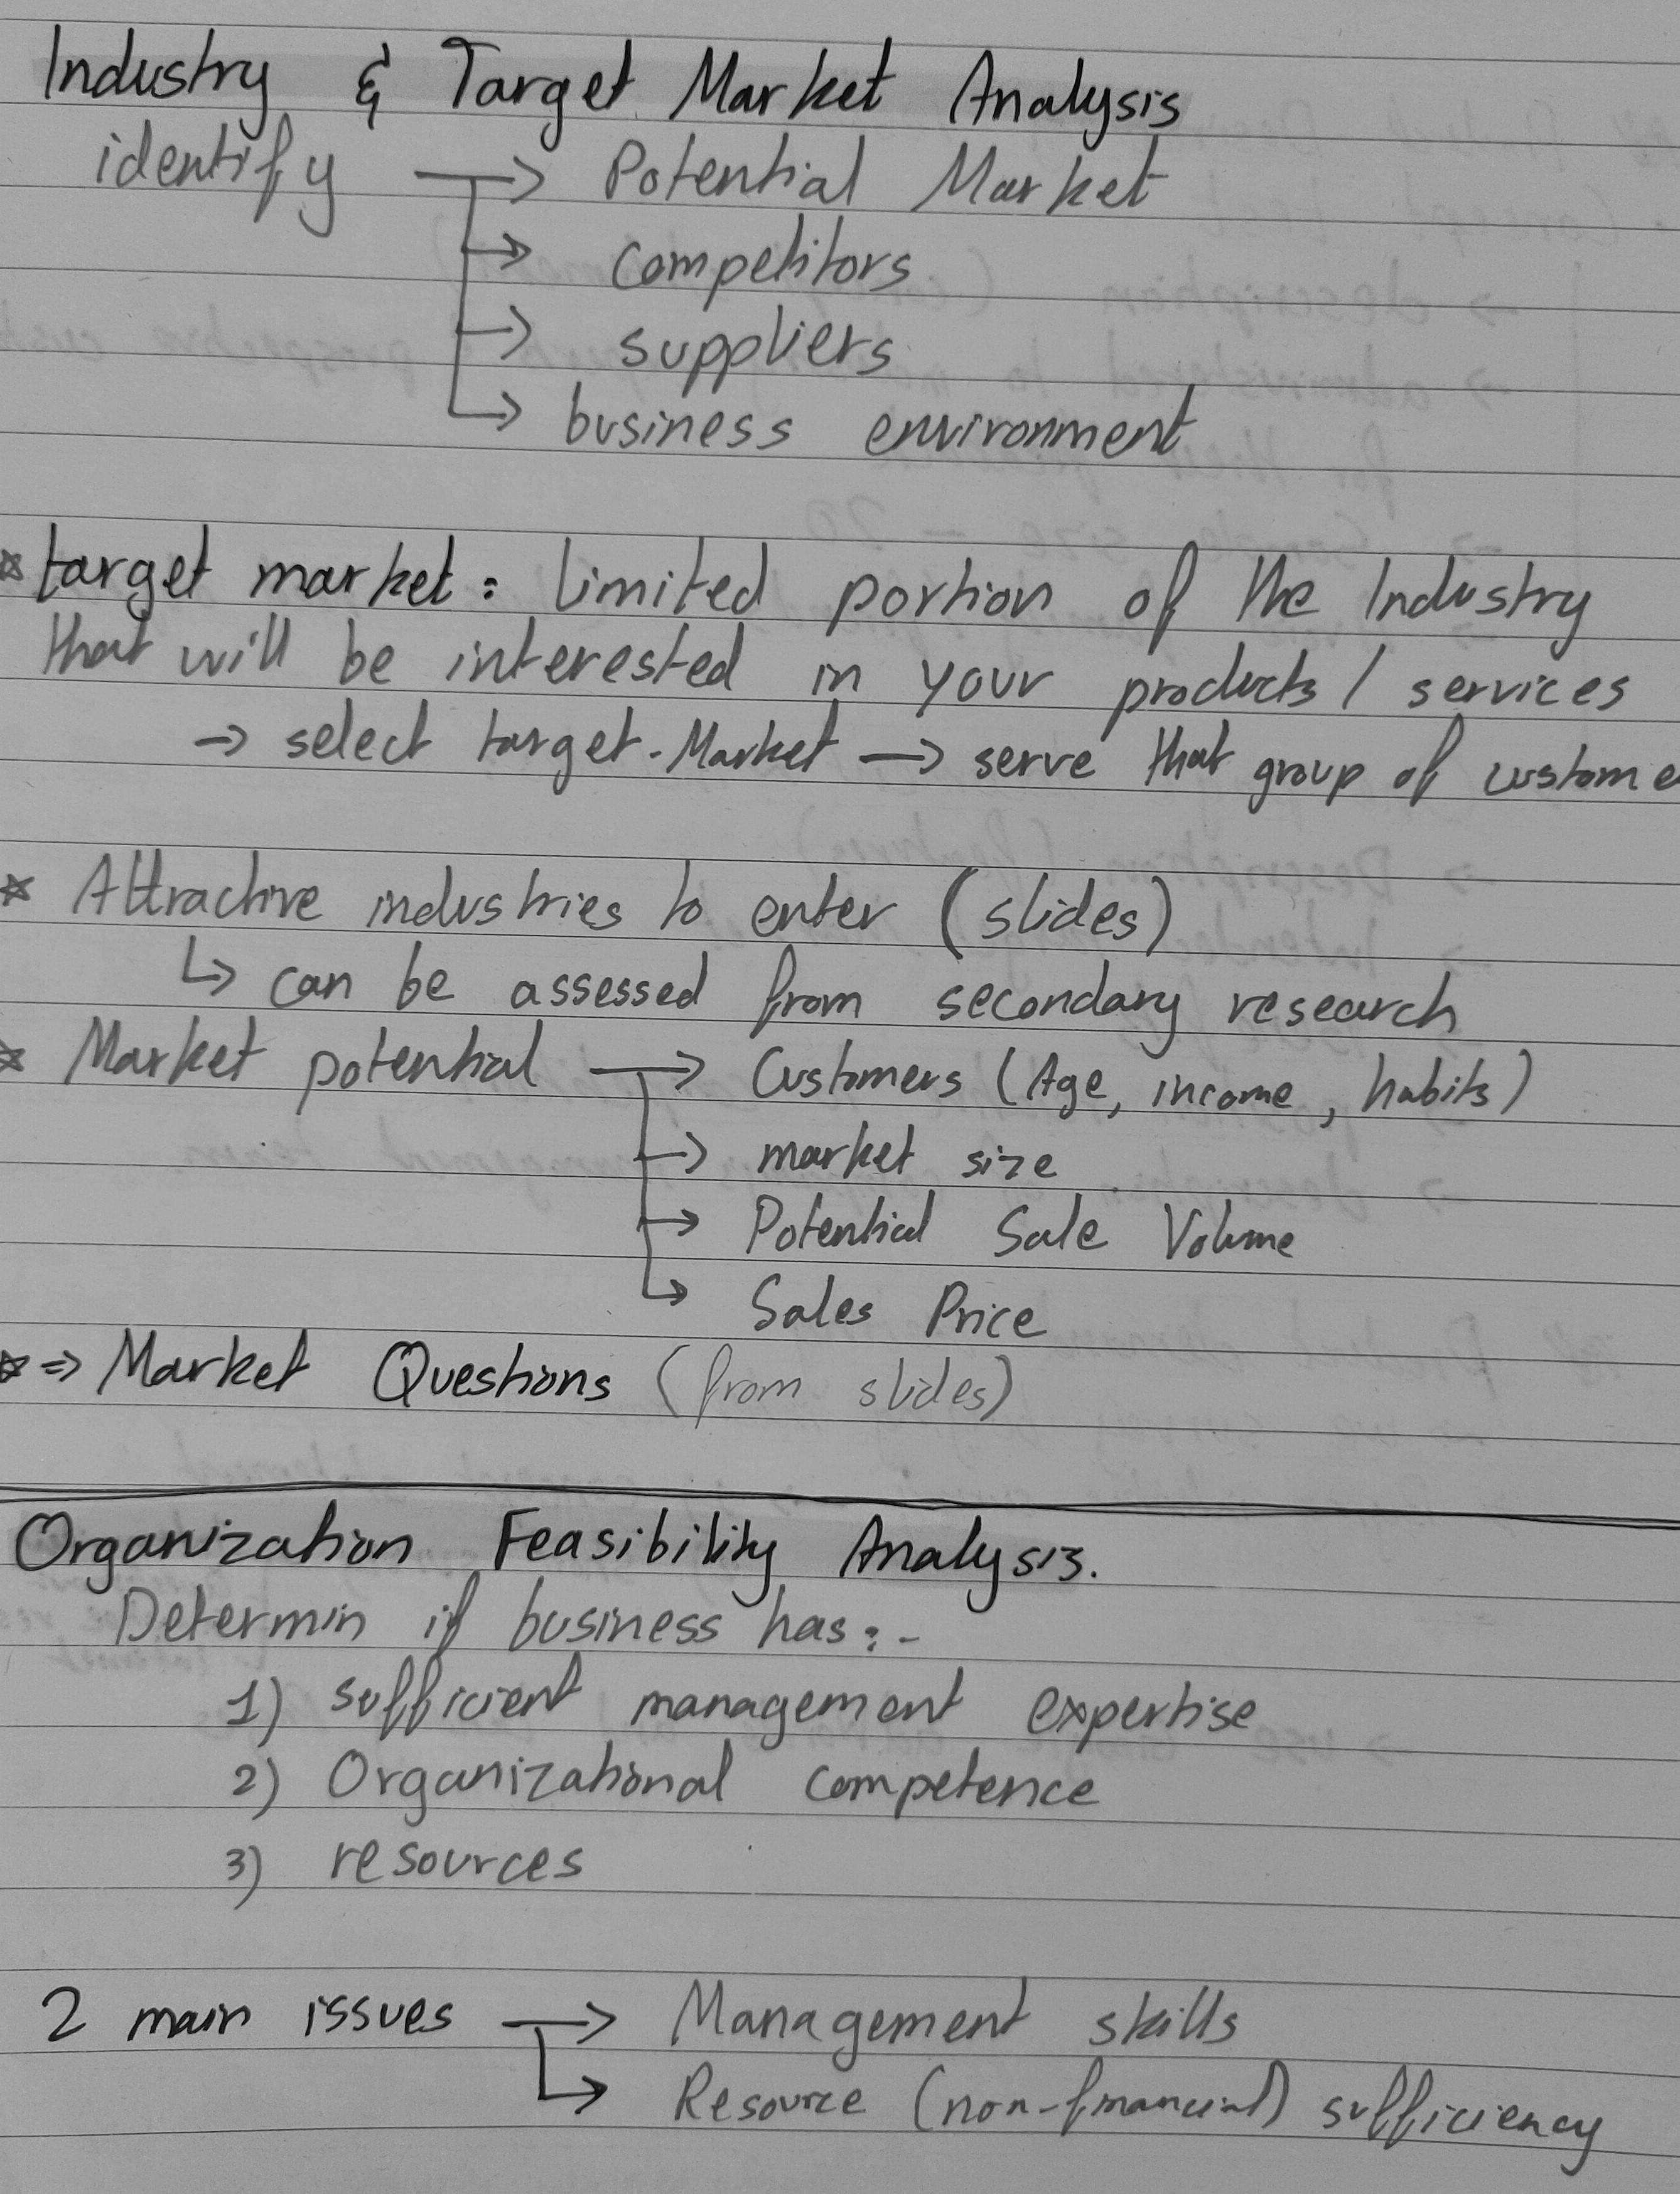 Industry & Target Market Analysis
identify → Potential Market
→ competitors
→ suppliers
→ business environment
* target market: limited portion of the Industry
that will be interested in your products / services
→ select target-Market → serve that group of custome
* Attractive industries to enter (slides)
↳ can be assessed from secondary research
* Market potential → Customers (Age, income, habits)
→ market size
→ Potential Sale Volume
↳ Sales Price
* ⇒ Market Questions (from slides)
Organization Feasibility Analysis.
Determin if business has:-
1) sufficient management expertise
2) Organizational competence
3) resources
2 main issues → Management skills
↳ Resource (non-financial) sufficiency